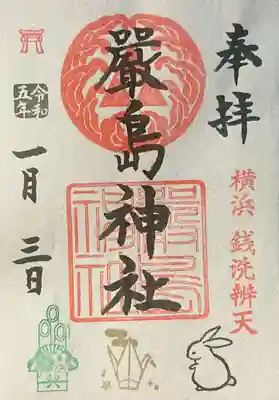 奉拝
横浜 銭洗辨天
嚴島神社
令和
五年
一月三日
嚴島
神社